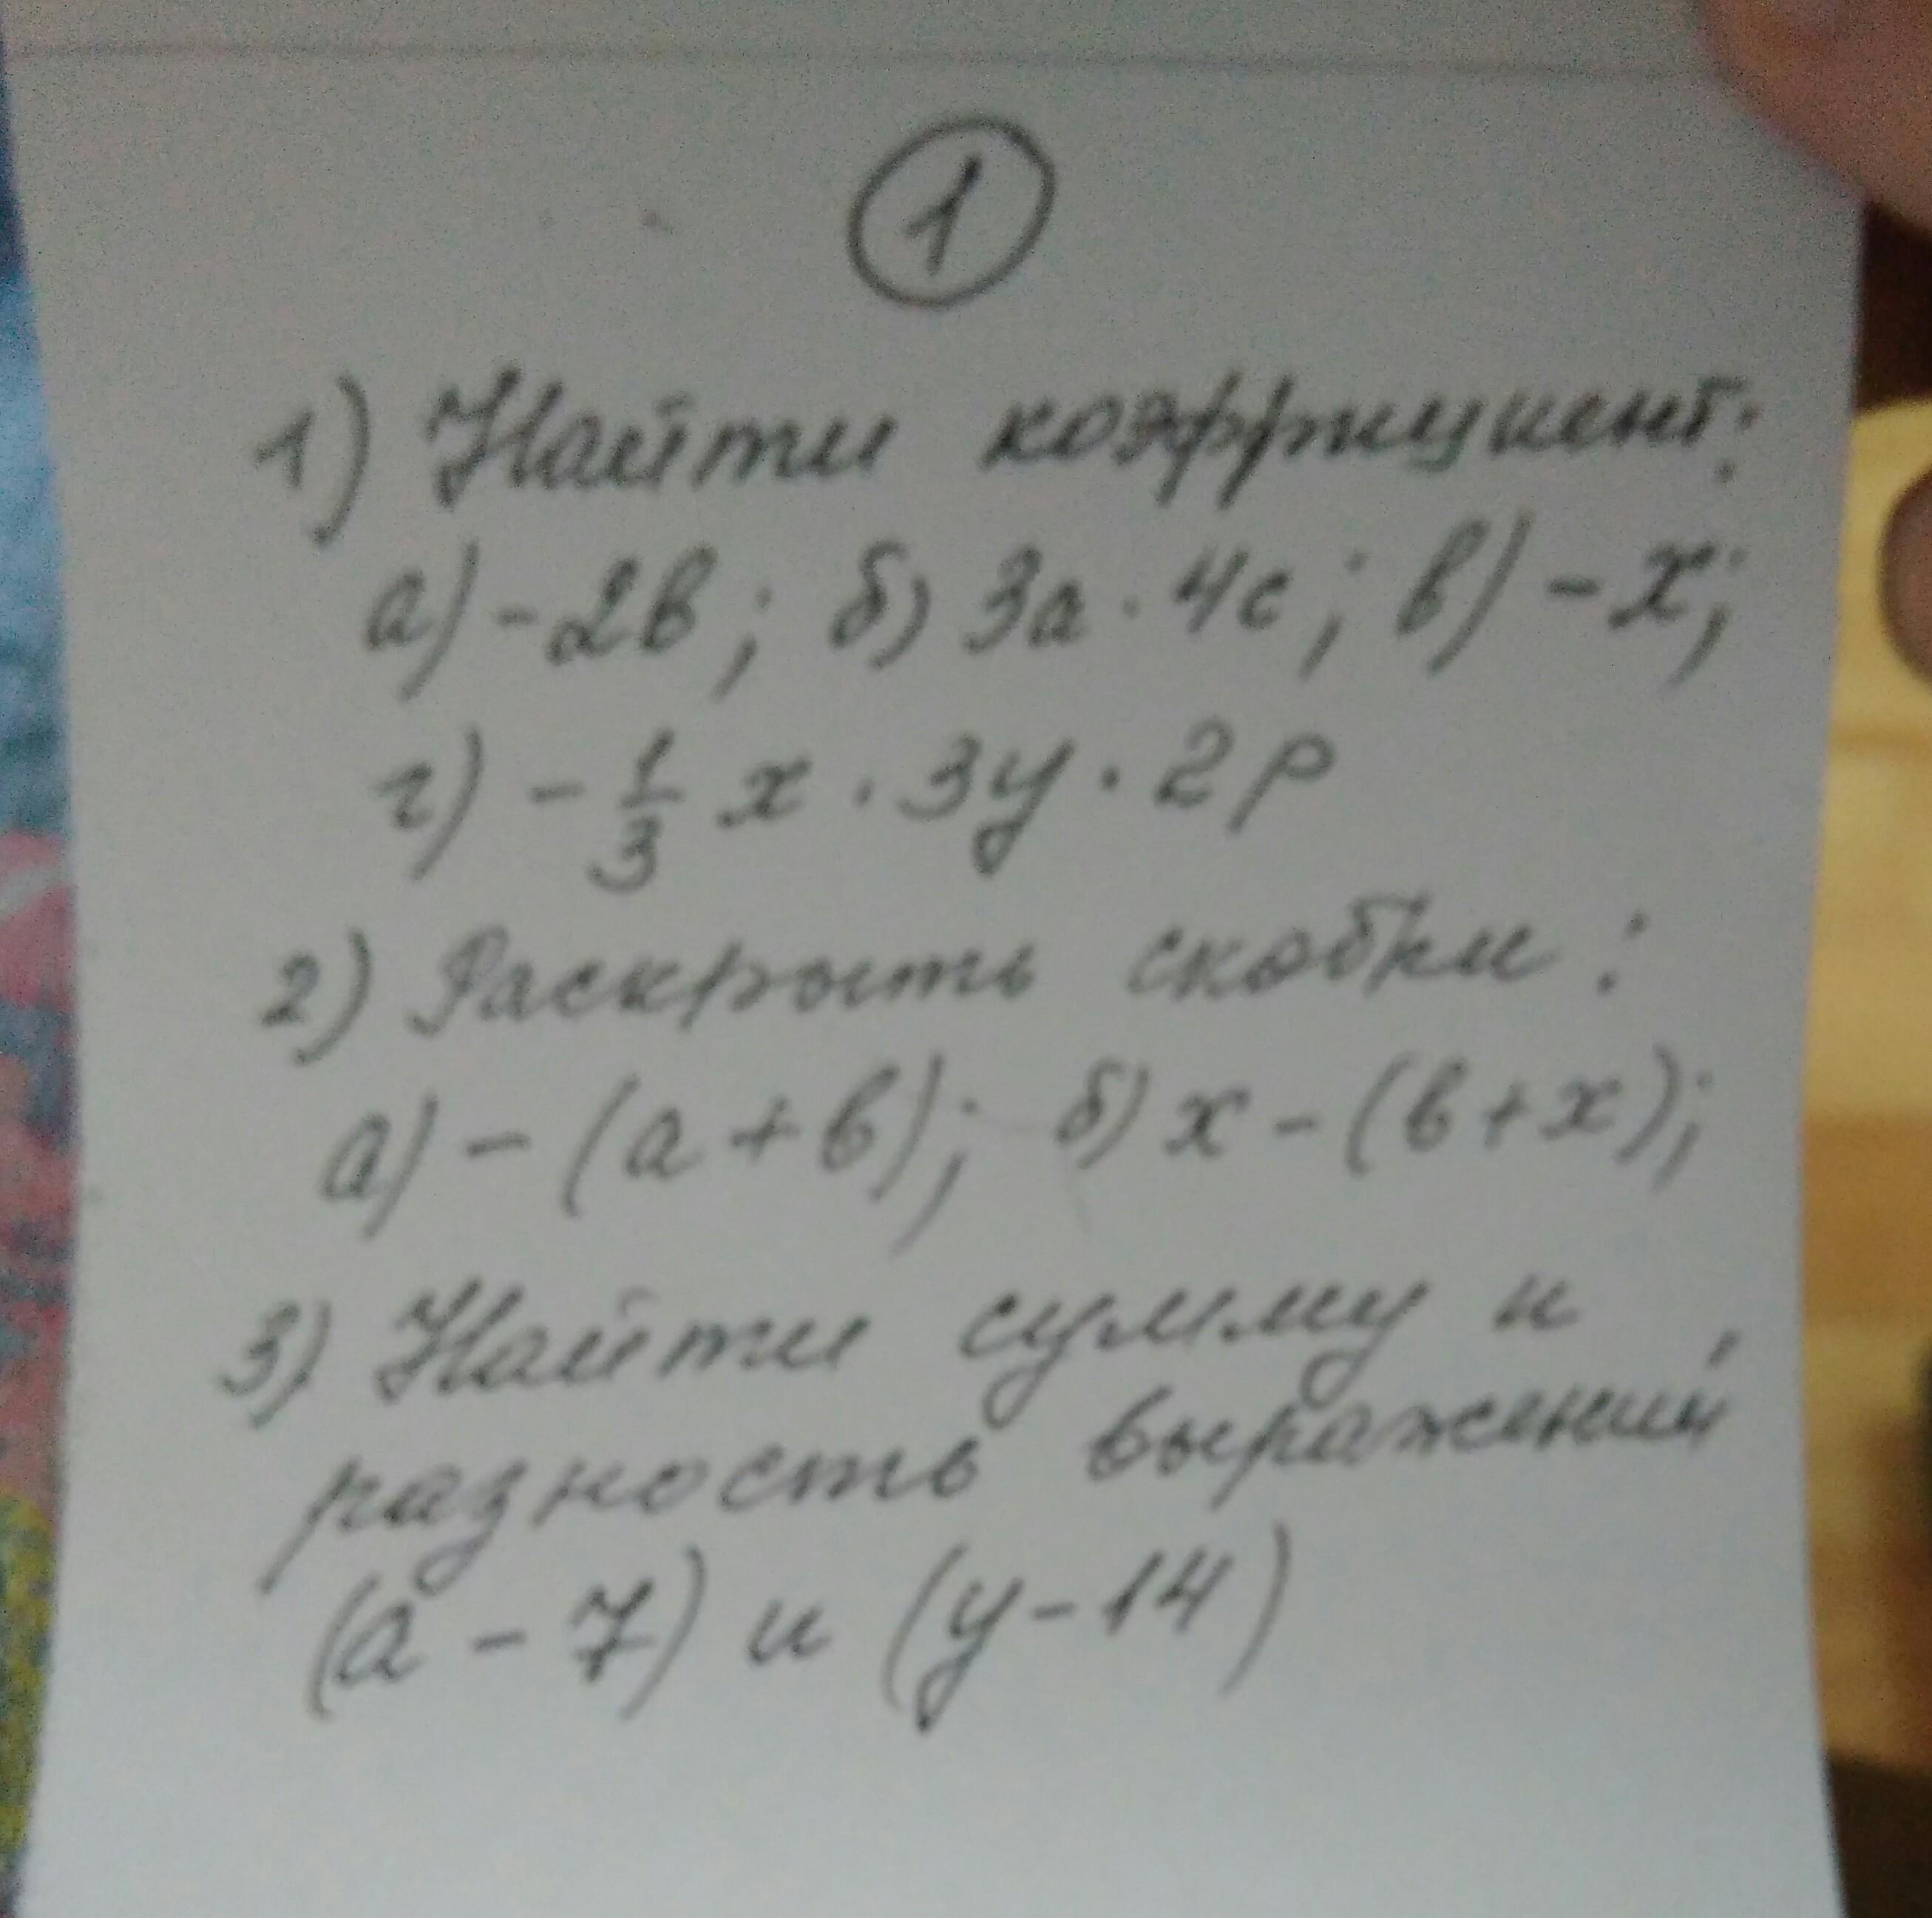 1
1) Найти коэффициент:
а) -2в; б) 3а · 4с; в) -х;
г) - 1/3 х · 3у · 2р
2) Раскрыть скобки:
а) - (а + в); б) х - (в + х);
3) Найти сумму и
разность выражений
(а - 7) и (у - 14)